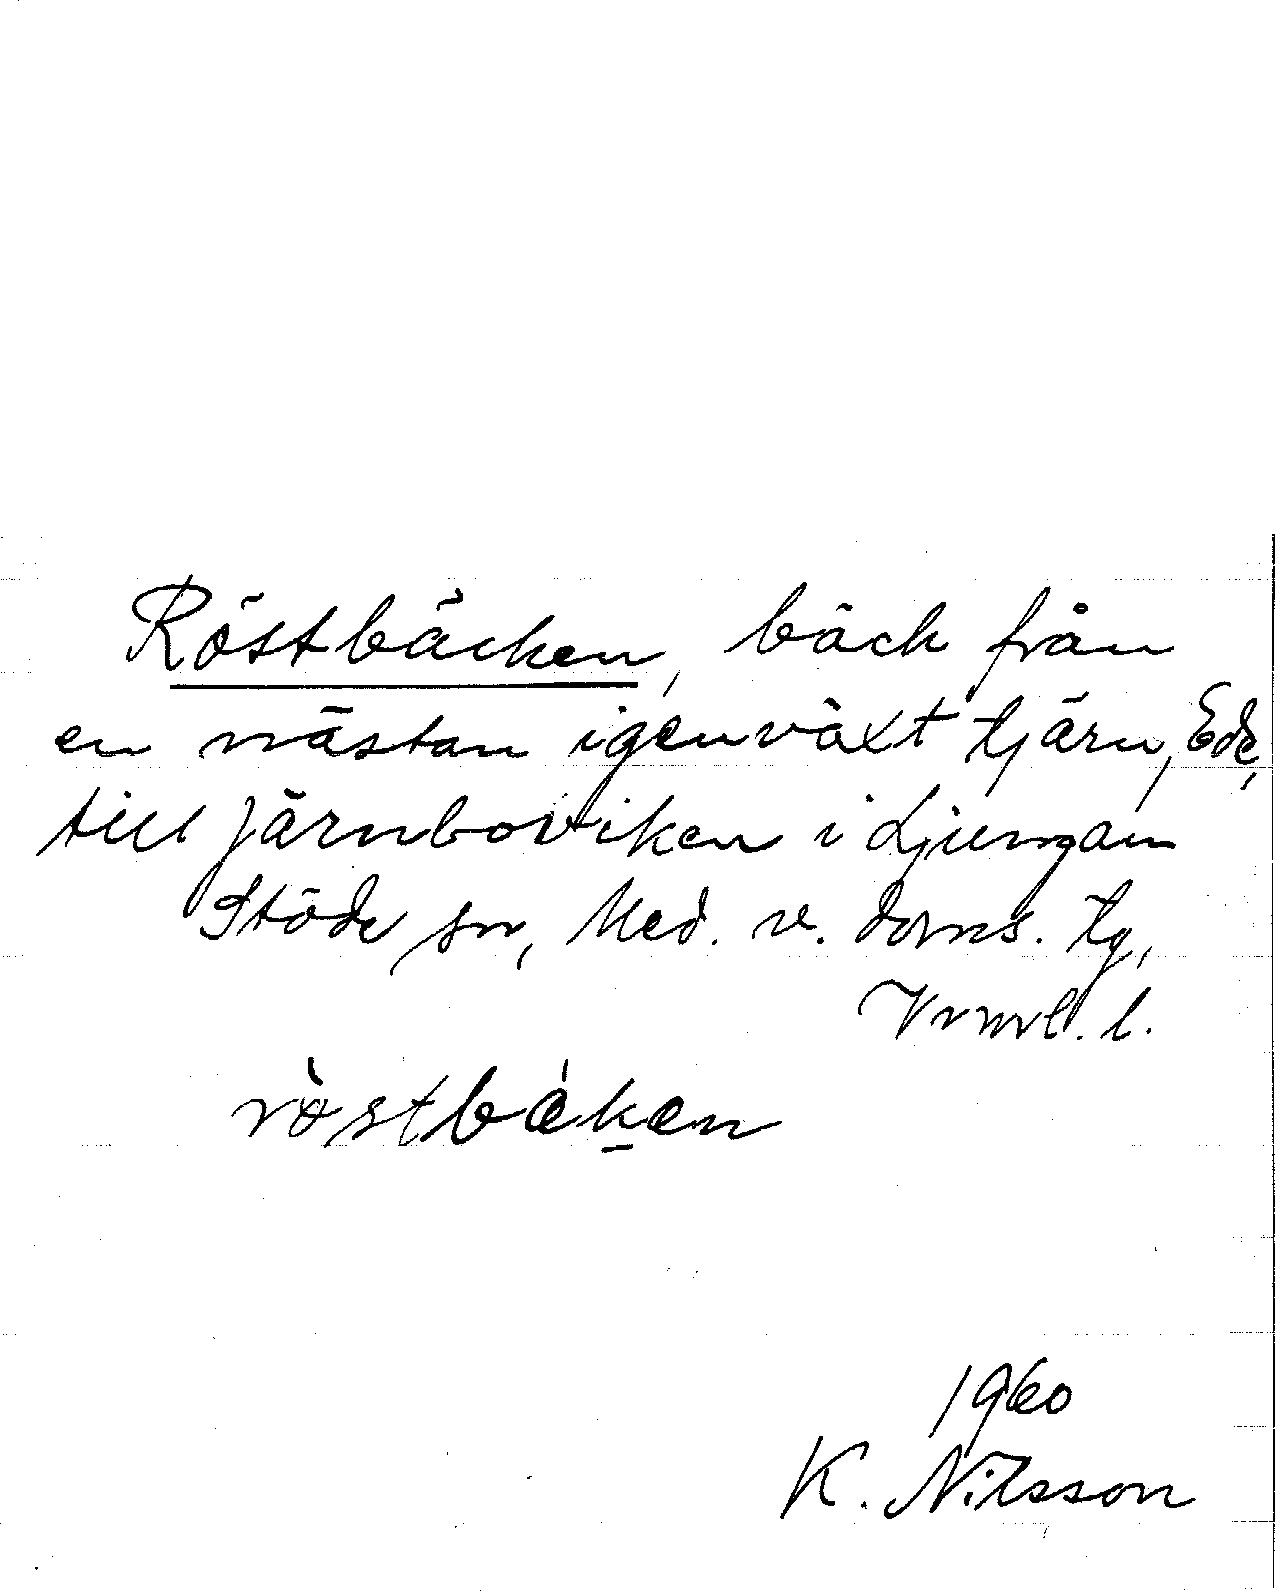 Röstbäcken, bäck från
en nästan igenväxt tjärn, Ede,
till Järnboviken i Ljungan
Stöde sn, Med. v. doms. tg,
Vrnrl. l.
röstbäken
1960
K. Nilsson